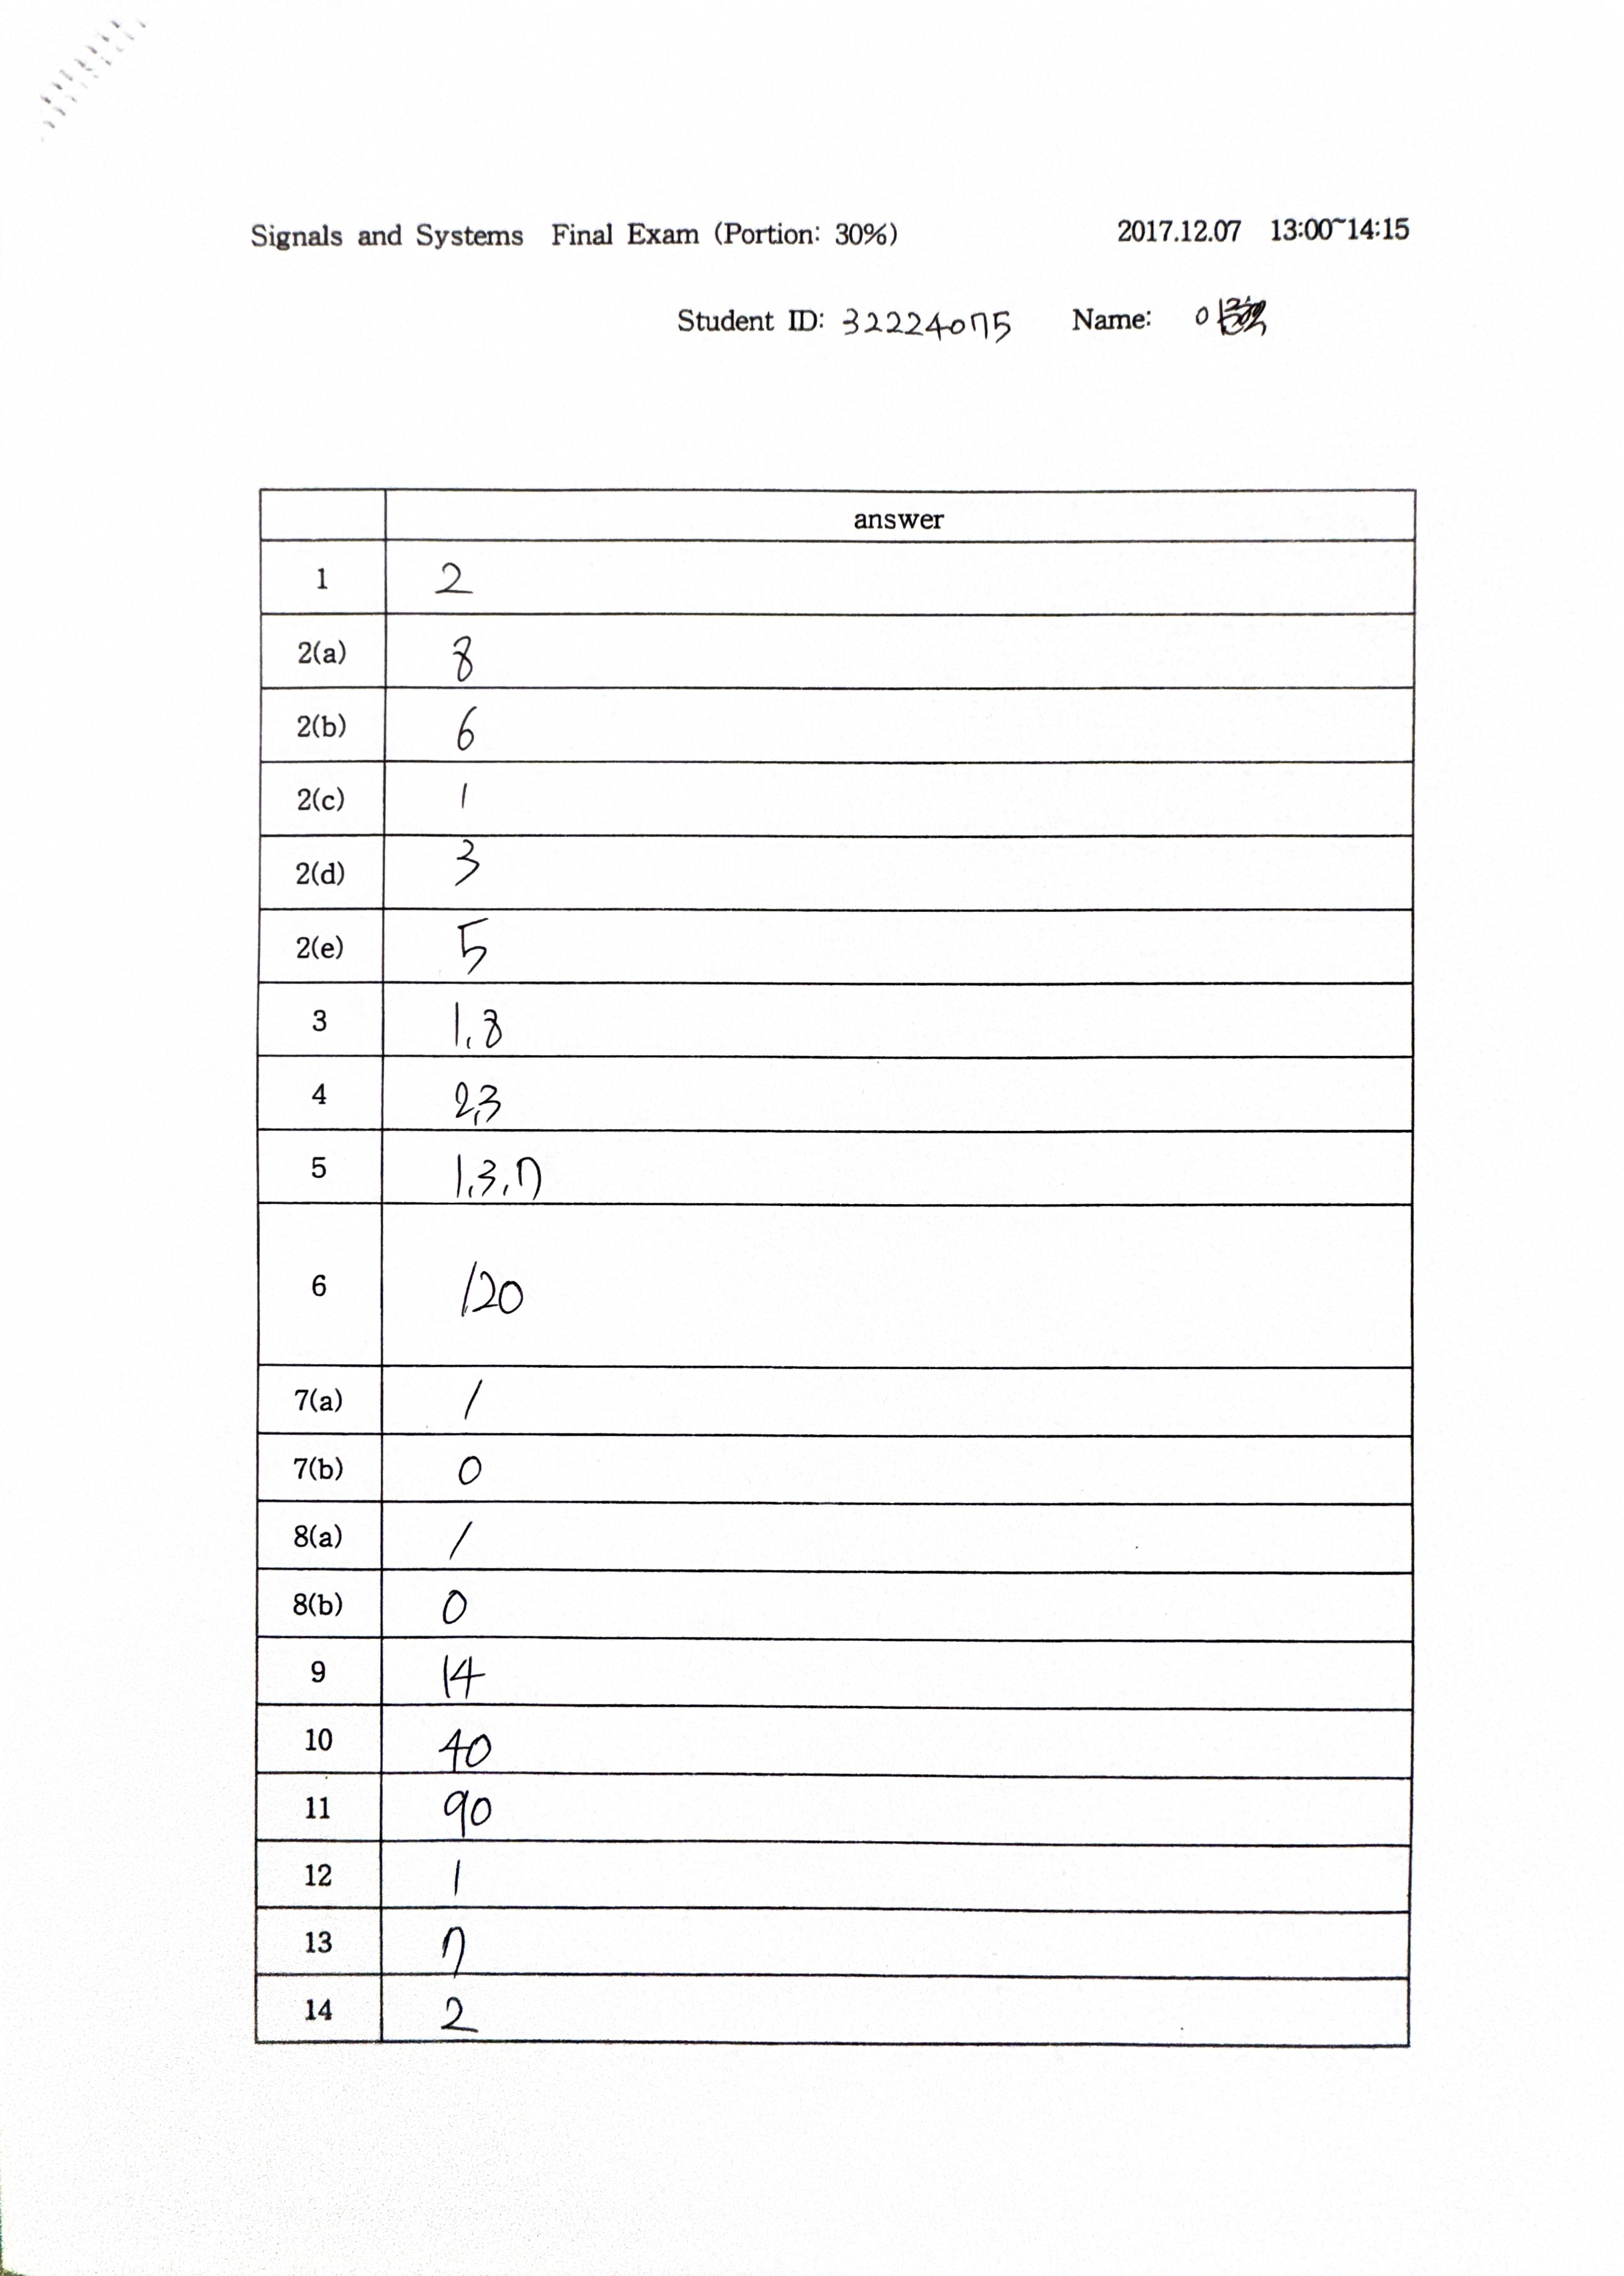 Signals and Systems Final Exam (Portion: 30%) 2017.12.07 13:00~14:15
Student ID: 32224075 Name:
answer
1 2
2(a) 8
2(b) 6
2(c) 1
2(d) 3
2(e) 5
3 1,8
4 2,3
5 1,3,7
6 120
7(a) 1
7(b) 0
8(a) 1
8(b) 0
9 14
10 40
11 90
12 1
13 7
14 2